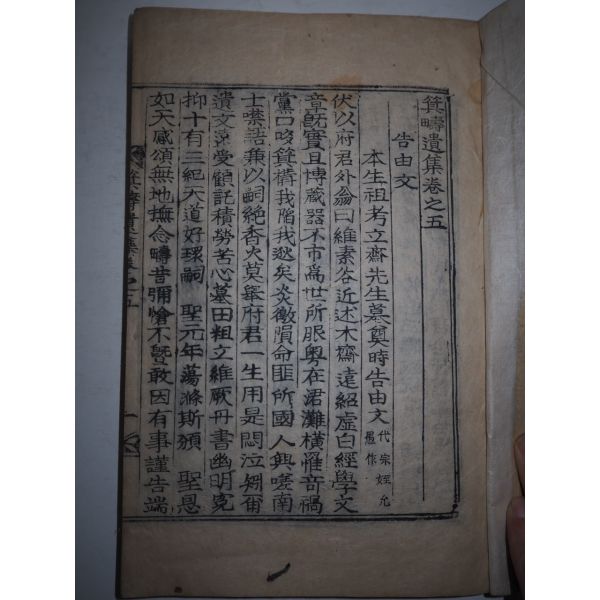 箕疇遺集卷之五
告由文
本生祖考立齋先生墓奠時告由文 代宗姪允愚作
伏以府君外翁曰維素谷近述木齋遠紹虛白經學文
章旣實且博藏器不市爲世所服粤在涒灘橫罹奇禍
黨口吹箕構我陷我逖矣炎徼隕命匪所國人興嗟南
士噤語兼以嗣絶香火莫擧府君一生用是悶泣芻
遺文受顧託積勞苦心墓田粗立維厥丹書幽明寃
抑十有三紀天道好環嗣聖元年蕩滌斯頒聖恩
如天感頌無地撫念疇昔彌愴不曁敢因有事謹告端
箕疇遺集卷之五 一